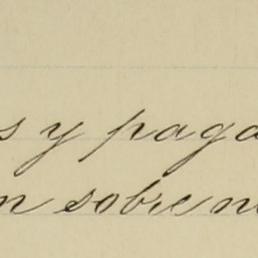 s y paga
n sobre n